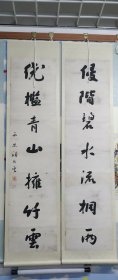 侵階碧水流桐雨
繞檻青山擁竹雲